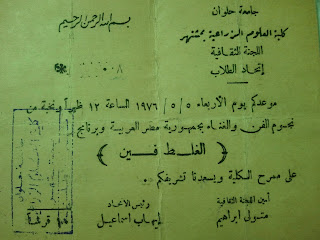 بسم الله الرحمن الرحيم
جامعة حلوان
كلية العلوم الزراعية بمشتهر
اللجنة الثقافية
إتحاد الطلاب
موعدكم يوم الأربعاء ١٩٧٦/٥/٥ الساعة ١٢ ظهراً ونخبة من
نجوم الفن والغناء بجمهورية مصر العربية وبرنامج
﴿ الغلط فين ﴾
على مسرح الكلية ويسعدنا تشريفكم ..
أمين اللجنة الثقافية
متولى ابراهيم
ورئيس الاتحاد
إيهاب اسماعيل